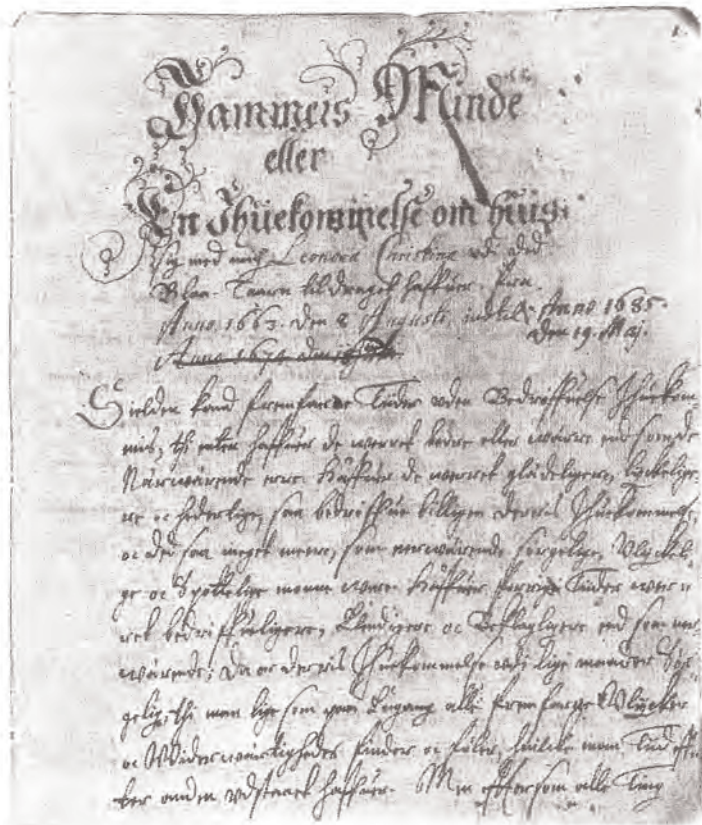 Jammers Minde
eller
En Ihuekommelse om huis
sig med mig Leonora Christina vdi ded
Blaa-Taarn tildragett haffuer. fra
Anno 1663. den 8 Augusti, indtil Anno 1685.
den 19. Maj.
Anno 1674
Sielden kand fremfarne Tiider vden Bedröffuelse Ihuekom
mis, thi enten haffuer de werret bedre eller wärre end som de
Närwärende erre. Haffuer de werret glädeligere, lyckelige-
re oc hederlige, saa bedröffue billigen derris Ihuekommelse,
oc ded saa meget meere, som nerwärende sorgelige, Vlyckeli-
ge oc Spottelige monne were. Haffuer forrige Tiider wer
ret bedröffueligere, Elendigere oc Beklagligere end som ner-
wärende; da er derris Ihuekommelse vdi lige maader Sör-
gelig, thi man lige som paa alle fremfarne Vlycker
oc Widerwärtigheder finder oc föler, huilcke man Tiid eff-
ter anden vdstaaet haffuer. Men effter som alle Ting